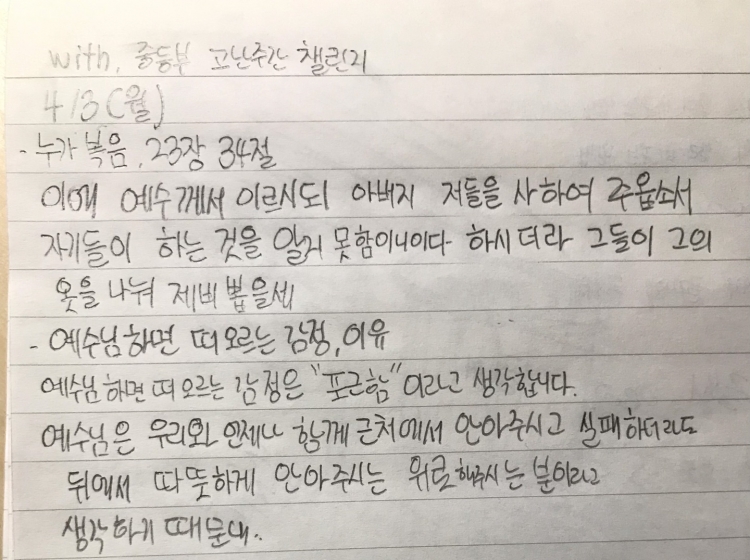 with, 중등부 고난주간 챌린지
4/3(월)
- 누가복음, 23장 34절
이에 예수께서 이르시되 아버지 저들을 사하여 주옵소서
자기들이 하는 것을 알지 못함이니이다 하시더라 그들이 그의
옷을 나눠 제비 뽑을새
- 예수님하면 떠오르는 감정, 이유
예수님하면 떠오르는 감정은 "포근함"이라고 생각합니다.
예수님은 우리와 언제나 함께 근처에서 안아주시고 실패하더라도
뒤에서 따뜻하게 안아주시는 위로해주시는 분이라고
생각하기 때문에..